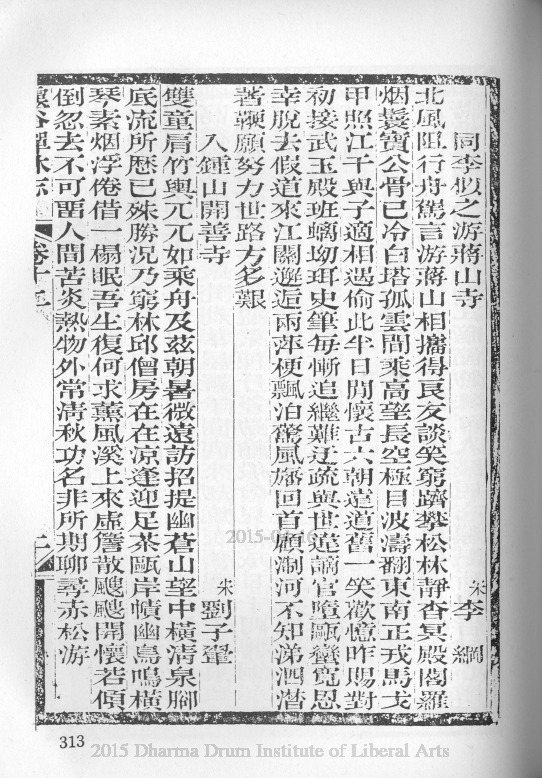 同李似之游蔣山寺 宋 李綱
北風阻行舟駕言游蔣山相攜得良友談笑窮躋攀松林靜杳冥殿閣羅
烟鬟寶公骨已冷白塔孤雲間乘高望長空極目波濤翻東南正戎馬戈
甲照江干與子適相遇偷此半日閒懷古六朝遠道舊一笑歡憶昨賜對
初接武玉殿班螭坳珥史筆每慚追繼難迂疏與世違謫官墮甌蠻寬恩
幸脫去假道來江關邂逅兩萍梗飄泊驚風旛回首顧淛河不知涕泗潸
著鞭願努力世路方多艱
入鍾山開善寺 宋 劉子翬
雙童肩竹輿兀兀如乘舟及茲朝暑微遠訪招提幽蒼山望中橫清泉腳
底流所歷已殊勝況乃窮林邱僧房在在涼逢迎足茶甌岸幘幽鳥鳴橫
琴素烟浮倦借一榻眠吾生復何求薰風溪上來虛簷散颼颼開懷若傾
倒忽去不可畱人間苦炎熱物外常清秋功名非所期聊尋赤松游
卷十三
313
2015 Dharma Drum Institute of Liberal Arts